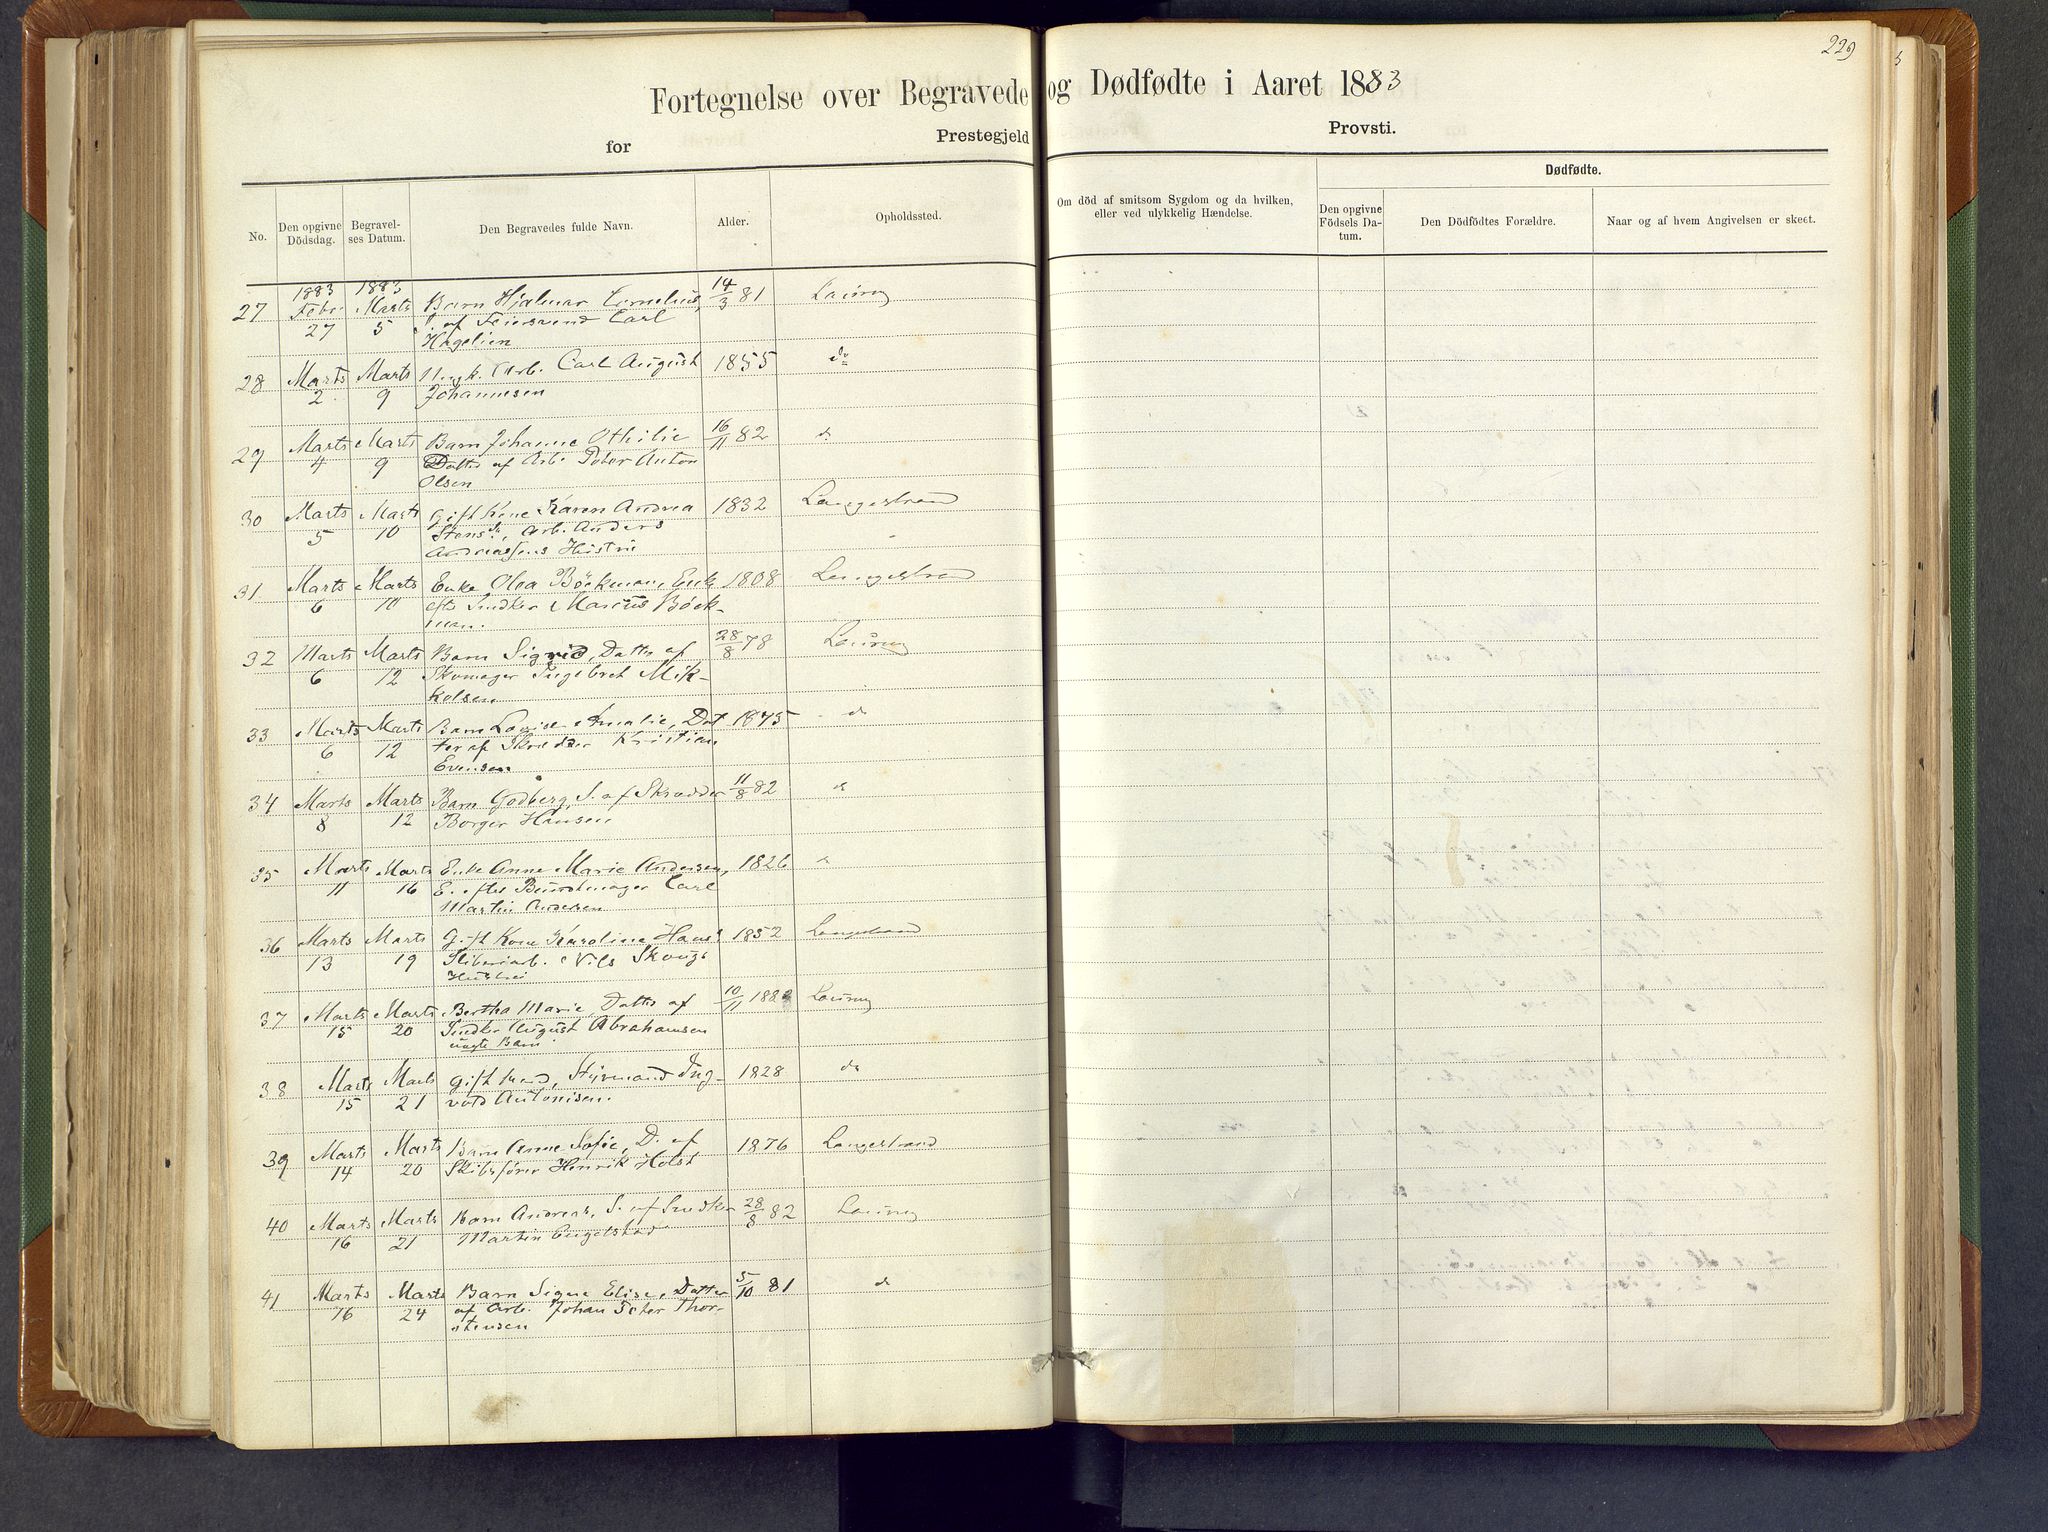 229
Fortegnelse over Begravede og Dødfødte i Aaret 1883
for Prestegjeld Provsti.
No. Den opgivne Dödsdag. Begravelses Datum. Den Begravedes fulde Navn. Alder. Opholdssted. Om död af smitsom Sygdom og da hvilken, eller ved ulykkelig Hændelse. Dødfødte. Den opgivne Födsels Datum. Den Dödfödtes Forældre. Naar og af hvem Angivelsen er skeet.
1883 1883
27 Febr Marts Barn Hjalmar Cornelius, 14/3 81 Laurv
27 5 S. af Feiersvend Carl
Hagelien
28 Marts Marts Ungk. Arb. Carl August 1855 do
2 9 Johannesen
29 Marts Marts Barn Johanne Othilie 16/11 82 do
4 9 Datter af Arb. Peter Anton
Olsen
30 Marts Marts Gift Kone Karen Andrea 1832 Langestrand
5 10 Stensd., Arb. Anders
Andreassens Hustru
31 Marts Marts Enke Olea Böckman, Enke 1808 Langestrand
6 10 eft. Snedker Marcus Böck-
man.
32 Marts Marts Barn Sigrid, Datter af 28/8 78 Laurv
6 12 Skomager Ingebret Mik-
kelsen
33 Marts Marts Barn Lovise Amalie, Dat- 1875 do
6 12 ter af Skrædder Kristian
Evensen
34 Marts Marts Barn Godberg, S. af Skrædder 11/8 82 do
8 12 Borger Hansen
35 Marts Marts Enke Anne Marie Andersen, 1826 do
11 16 E. efter Buntmager Carl
Martin Andersen
36 Marts Marts Gift Kone Karoline Hansd. 1852 Langestrand
13 19 Sliberiarb. Nils Skougs
Hustru
37 Marts Marts Bertha Marie, Datter af 10/11 1882 Laurv
15 20 Snedker August Abrahamsen
uægte Barn
38 Marts Marts Gift Mand, Styrmand Ing- 1828 do
15 21 vold Antonisen.
39 Marts Marts Barn Anne Sofie, D. af 1876 Langestrand
14 20 Skibsförer Henrik Holst
40 Marts Marts Barn Andreas, S. af Snedker 28/8 82 Laurv
16 21 Martin Engelstad
41 Marts Marts Barn Signe Elise, Datter 5/10 81 do
16 24 af Arb. Johan Peter Thor-
stensen